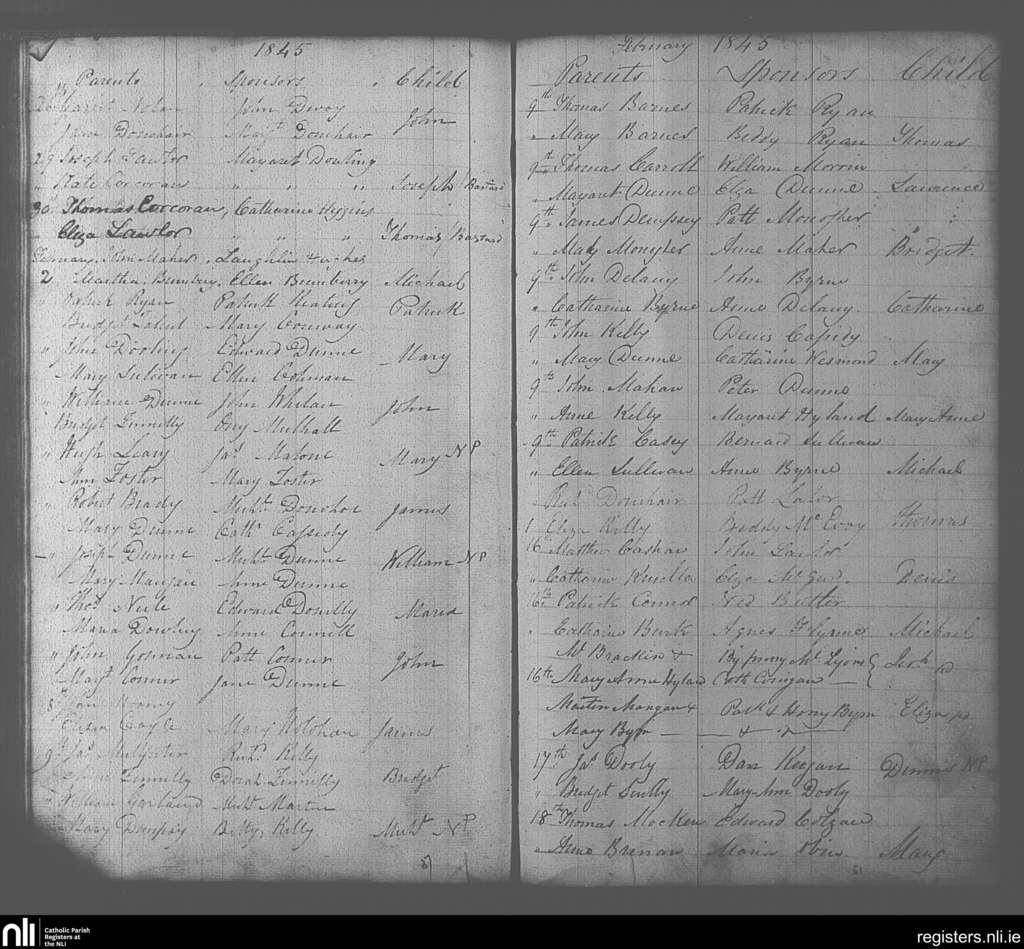 1845
Parents Sponsors Child
26 Garret Nolan John Devoy
Jane Donohair Margt Donohair John
29 Joseph Lawlor Margaret Dowling
" Kate Corcoran " " " Joseph Bastard
30 Thomas Corcoran, Catharine Higgins
" Eliza Lawlor " " " Thomas Bastard
February John Maher, Laughlin Hughes
2 Martha Bumbery Ellen Bumberry Michael
" Patrick Ryan Patrick Keating Patrick
Bridget Mary Conway
" John Dooling Edward Dunne Mary
Mary Sulovan Ellen
" William Dunne John Whelan John
Bridget Finnelly Mulhall
" Hugh Leary Jas Malone Mary NP
Ann Foster Mary Foster
" Robert Brady Michl Donohoe James
Mary Dunne Cath Cassidy
" Joseph Dunne Michl Dunne William NP
Mary Mangan Anne Dunne
" Thos Neile Edward Donilly Maria
Maria Dowling Anne Connell
" John Gorman Patt Connor John
Margt Connor Jane Dunne
8
Coyle Mary Holohan James
9 Jas Richd Kelly
Finnilly Dorah Finnilly Bridget
" William Garland Michl Martin
Mary Dempsey Betty Kelly Michl NP
February 1845
Parents Sponsors Child
9th Thomas Barnes Patrick Ryan
" Mary Barnes Biddy Ryan Thomas
9th Thomas Carroll William Morrin
" Margaret Dunne Eliza Dunne Lawrence
9th James Dempsey Patt
" Mary Anne Maher Bridget
9th John Delany John Byrne
" Catharine Byrne Anne Delany Catharine
9th John Kelly Denis Cassidy
" Mary Dunne Catharine Mary
9th John Mahan Peter Dunne
" Anne Kelly Margaret Hyland Mary Anne
9th Patrick Casey Bernard Sullivan
" Ellen Sullivan Anne Byrne Michael
Donohair Patt Lalor
1 Eliza Kelly Biddy Mc Evoy Thomas
16 Matthew Cashan John Lawlor
" Catharine Eliza Denis
16th Patrick Connor Ned Butler
" Catharine Burk Agnes Michael
Mt Brackin & By proxy Mt Lyons
16th Mary Anne Hyland Cath Corrigan
Martin Mangan & Patk & Honry Byrn Eliza pd
Mary Byrn
17th Jas Dooly Dan Keegan Dennis NP
" Bridget Scully Mary Ann Dooly
18th Thomas Edward Colgan
" Anne Brenan Maria Mary
nli Catholic Parish
Registers at
the NLI
registers.nli.ie